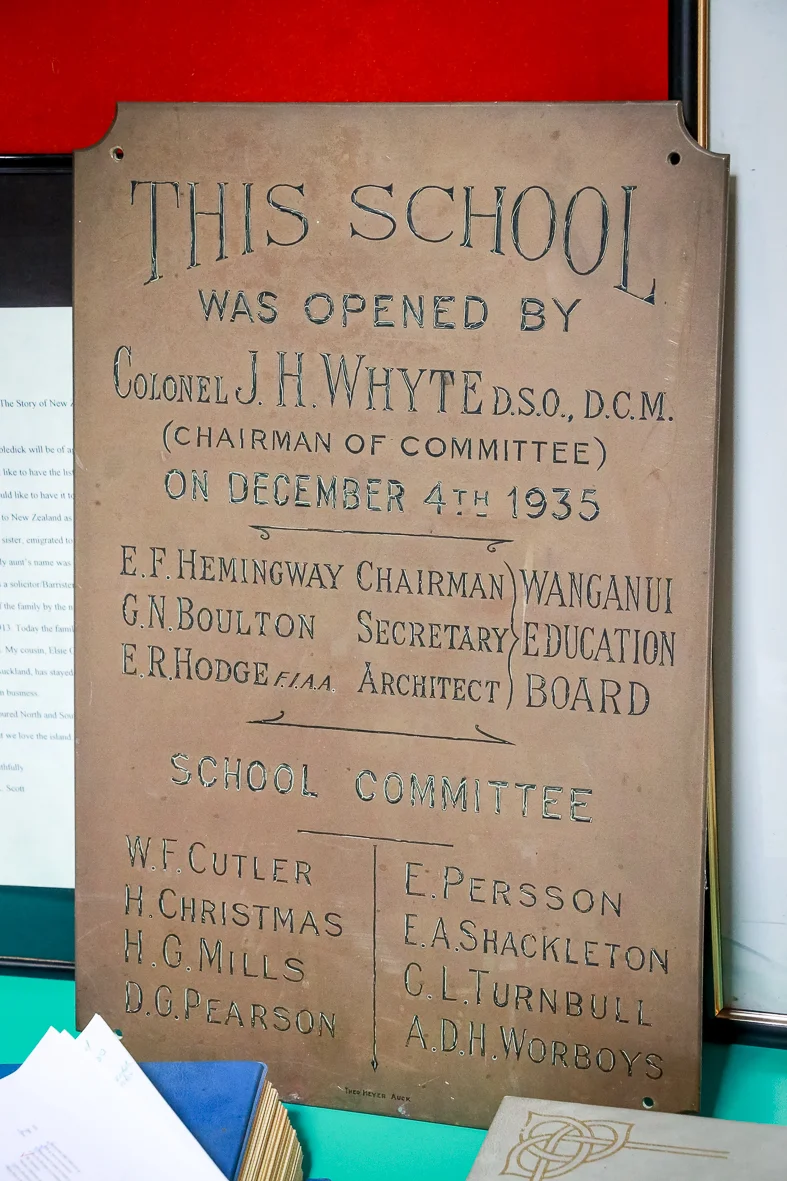 THIS SCHOOL
WAS OPENED BY
COLONEL J. H. WHYTE D.S.O., D.C.M.
(CHAIRMAN OF COMMITTEE)
ON DECEMBER 4TH 1935
E. F. HEMINGWAY CHAIRMAN
G. N. BOULTON SECRETARY
E. R. HODGE F.I.A.A. ARCHITECT
WANGANUI
EDUCATION
BOARD
SCHOOL COMMITTEE
W. F. CUTLER
H. CHRISTMAS
H. G. MILLS
D. G. PEARSON
E. PERSSON
E. A. SHACKLETON
C. L. TURNBULL
A. D. H. WORBOYS
THEO MEYER AUCK
The Story of New
will be of
like to have the
like to have it
to New Zealand as
sister, emigrated to
aunt's name was
a solicitor/Barrister
the family by the
13. Today the
My cousin, Elsie
has stayed
business.
North and
we love the island
Scott